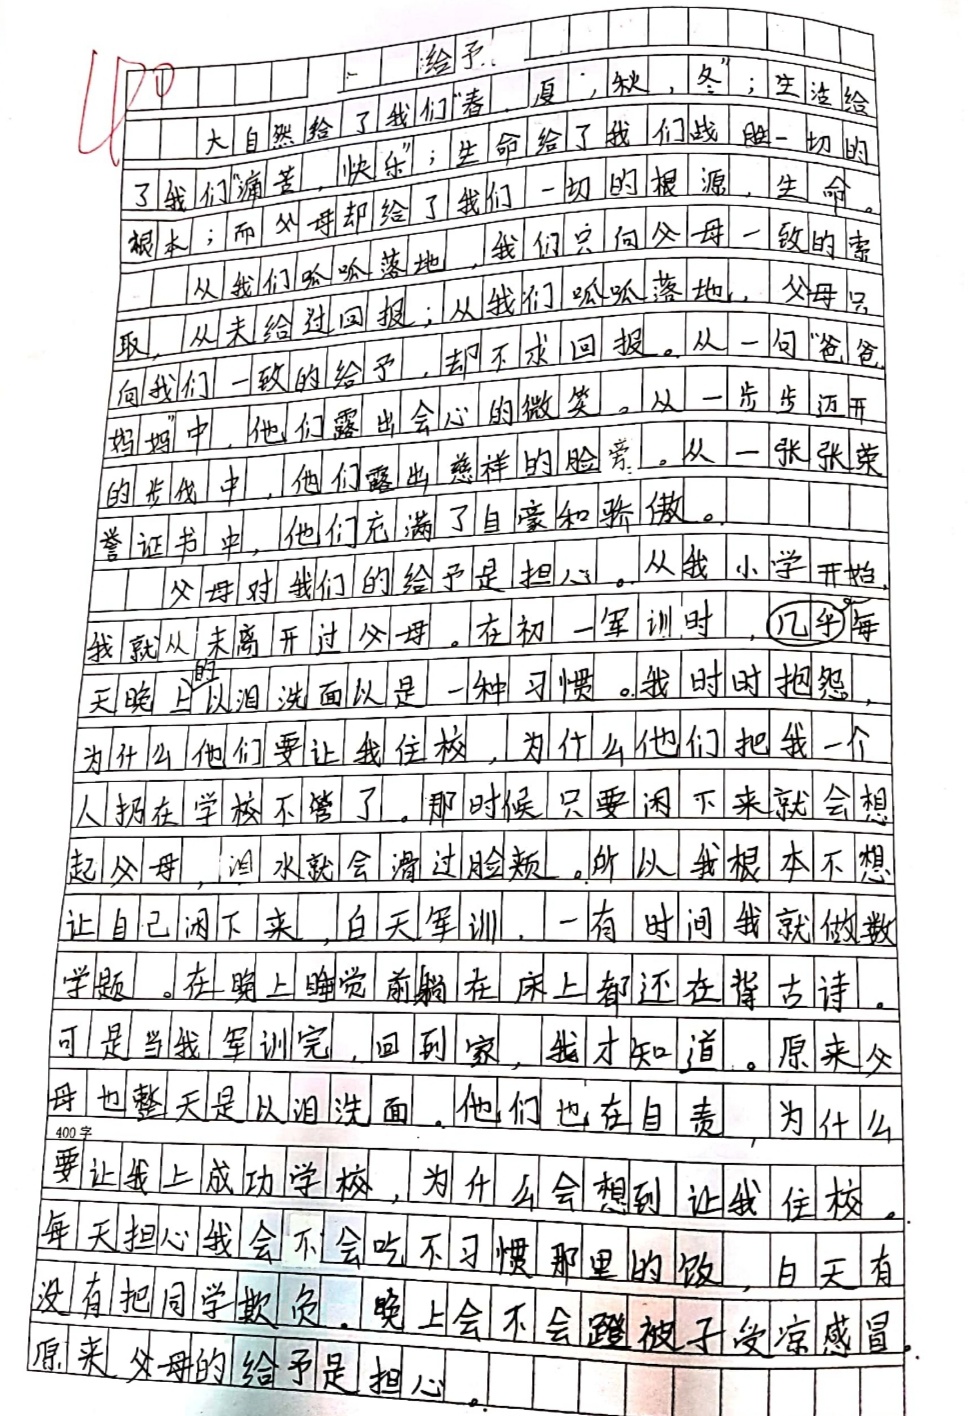 给予
大自然给了我们“春，夏，秋，冬”；生活给
了我们“痛苦，快乐”；生命给了我们战胜一切的
根本；而父母却给了我们一切的根源，生命。
从我们呱呱落地，我们只向父母一致的索
取，从未给过回报；从我们呱呱落地，父母只
向我们一致的给予，却不求回报。从一句“爸爸
妈妈”中，他们露出会心的微笑。从一步步迈开
的步伐中，他们露出慈祥的脸旁。从一张张荣
誉证书中，他们充满了自豪和骄傲。
父母对我们的给予是担心。从我小学开始，
我就从未离开过父母。在初一军训时，几乎每
天晚上的以泪洗面以是一种习惯。我时时抱怨，
为什么他们要让我住校，为什么他们把我一个
人扔在学校不管了。那时候只要闲下来就会想
起父母，泪水就会滑过脸颊。所以我根本不想
让自己闲下来，白天军训，一有时间我就做数
学题。在晚上睡觉前躺在床上都还在背古诗。
可是当我军训完，回到家，我才知道。原来父
母也整天是以泪洗面。他们也在自责，为什么
400字
要让我上成功学校，为什么会想到让我住校。
每天担心我会不会吃不习惯那里的饭，白天有
没有把同学欺负。晚上会不会蹬被子受凉感冒。
原来父母的给予是担心。